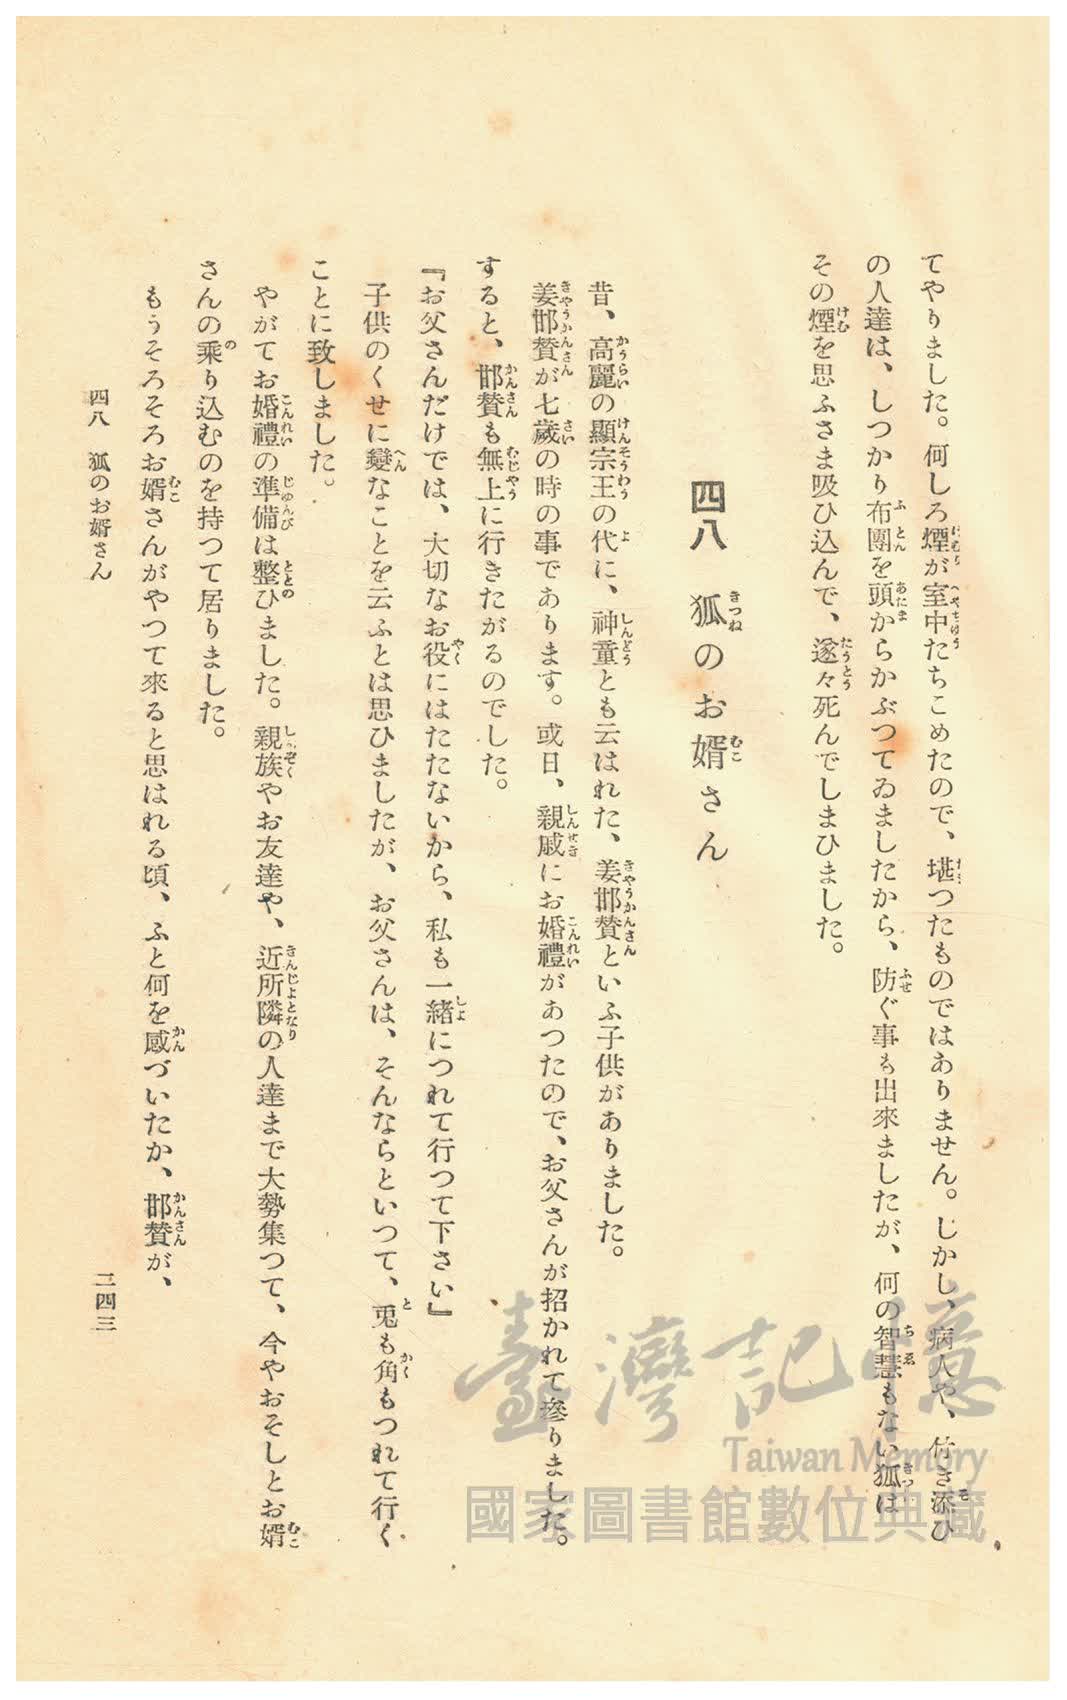 てやりました。何しろ煙が室中たちこめたので、堪つたものではありません。じかし、病人や、付き添ひ
の人達は、しつかり布團を頭からかぶつてゐましたから、防ぐ事も出來ましたが、何の智慧もない狐は
その煙を思ふさま吸ひ込んで、遂々死んでしまひました。
四八　狐のお婿さん
昔、高麗の顯宗王の代に、神童とも云はれた、姜邯賛といふ子供がありました。
姜邯賛が七歲の時の事であります。或日、親戚にお婚禮があつたので、お父さんが招かれて參りました。
すると、邯賛も無上に行きたがるのでした。
『お父さんだけでは、大切なお役にはたたないから、私も一緒につれて行つて下さい』
子供のくせに變なことを云ふとは思ひましたが、お父さんは、そんならといつて、兎も角もつれて行く
ことに致しました。
やがてお婚禮の準備は整ひました。親族やお友達や、近所隣の人達まで大勢集つて、今やおそしとお婿
さんの乘り込むのを持つて居りました。
もうそろそろお婿さんがやつて來ると思はれる頃、ふと何を感づいたか、邯賛が、
四八　狐のお婿さん
二四三
臺灣記憶
Taiwan Memory
國家圖書館數位典藏